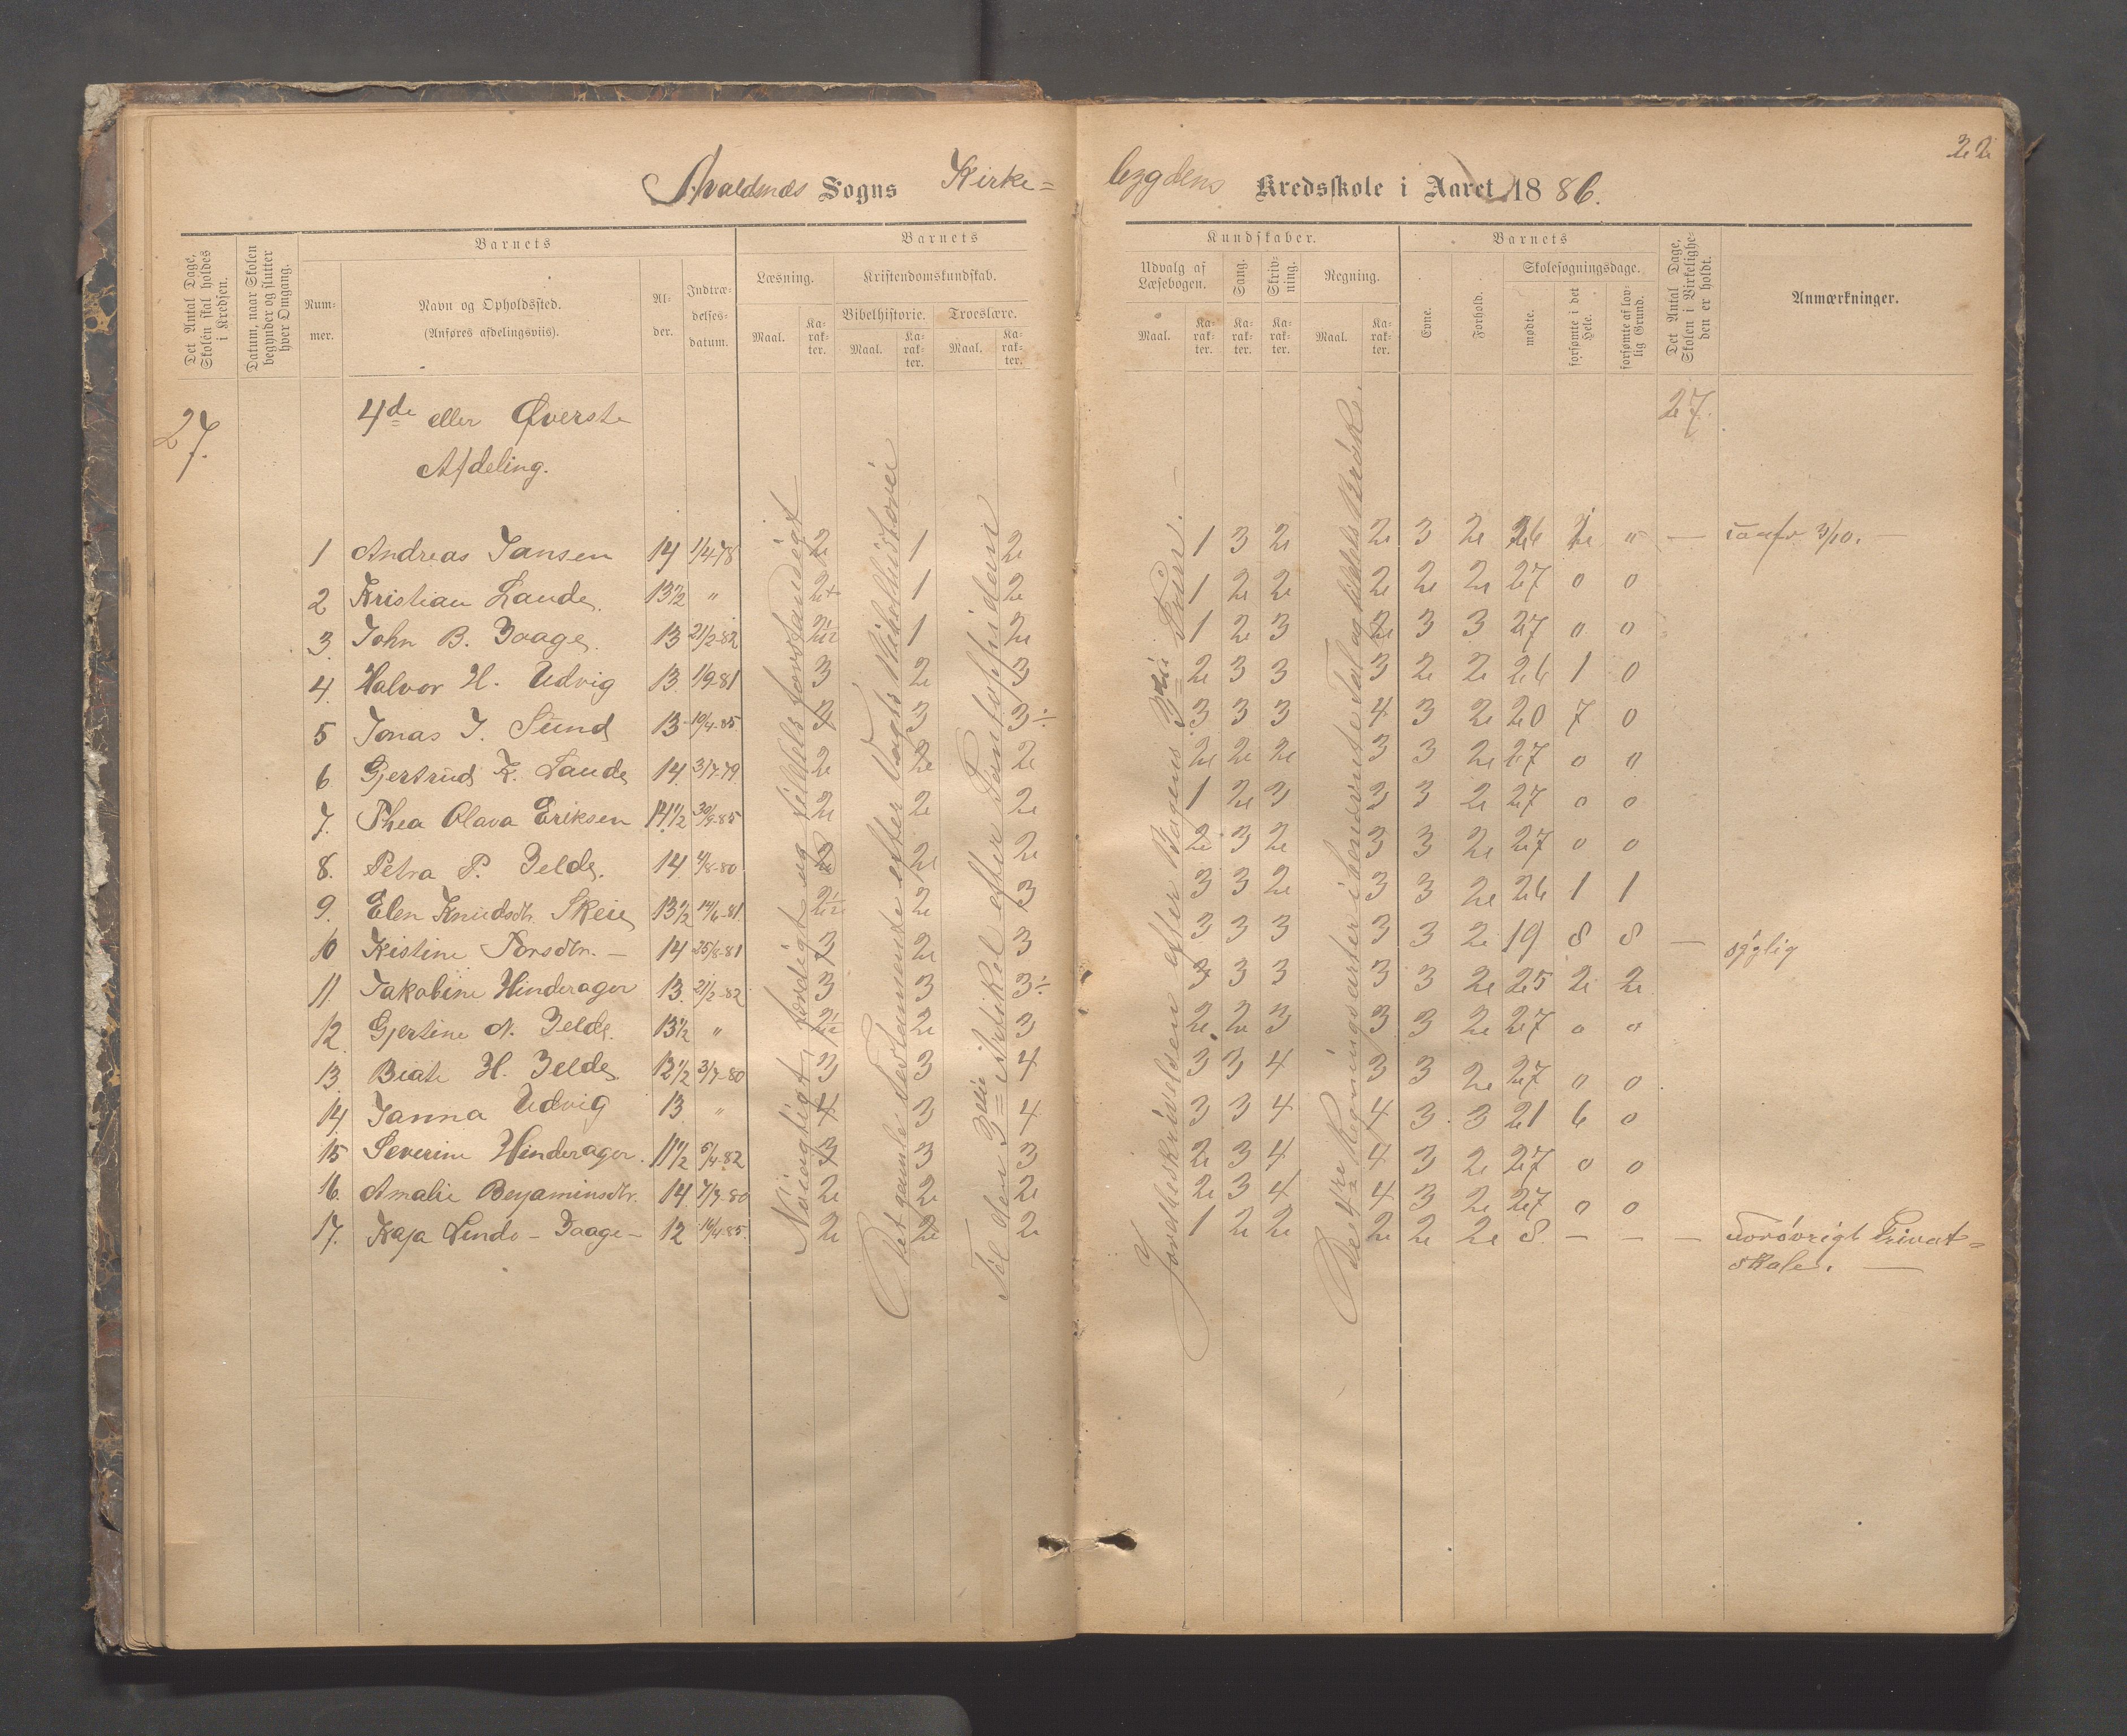 22
Avaldsnæs Sogns Kirke= bygdens Kredsskole i Aaret 1886.
Det Antal Dage, Skolen skal holdes i Kredsen.
Datum, naar Skolen begynder og slutter hver Omgang.
Barnets
Num-mer.
Navn og Opholdssted.
(Anføres afdelingsviis).
Al-der.
Indtræ-delses-datum.
Barnets
Læsning.
Kristendomskundskab.
Bibelhistorie. Troeslære.
Maal. Ka-rak-ter. Maal. Ka-rak-ter. Maal. Ka-rak-ter.
Kundskaber.
Udvalg af Læsebogen. Sang. Skriv-ning. Regning.
Maal. Ka-rak-ter. Ka-rak-ter. Ka-rak-ter. Maal. Ka-rak-ter.
Barnets
Evne. Forhold. Skolesøgningsdage.
mødte. forsømte i det Hele. forsømte af lov-lig Grund.
Det Antal Dage, Skolen i Virkelighe-den er holdt.
Anmærkninger.
27. 4de eller Øverste 27.
Afdeling.
Nøiagtigt, færdigt og tildels forstandigt
Det gamle testamente efter Vogts Bibelhistorie
Til den 3die Artikel efter Pontoppidan
Jordbeskrivelsen efter Bogens 3die Trin.
De 4re Regningsarter i benævnte Tal og tildels Brøk.
1 Andreas Jansen 14 1/4-78 2 1 2 1 3 2 2 3 2 26 2 " — 3/10. —
2 Kristian Lande. 13½ " 2+ 1 2 1 2 2 2 2 2 27 0 0
3. John B. Baage. 13 21/2-82 2½ 1 2 1 2 3 2 3 3 27 0 0
4. Halvor H. Udvig 13 1/9-81 3 2 3 2 3 3 3 2 2 26 1 0
5 Jonas J. Sund 13 10/4-85. 3 3 3÷ 3 3 3 4 3 2 20 7 0
6 Gjertrud K. Lande 14. 3/7-79. 2 2 2 2 2 2 3 3 2 27 0 "
7. Thea Olava Eriksen 11½ 30/8-85 2 2 2 1 2 3 3 3 2 27 0 0
8. Petra P. Velde. 14 4/8-80 2 2 2 2 3 2 3 3 2 27 0 0
9. Elen Knudsdtr. Skeie 13½ 14/6-81. 2½ 2 3 3 3 2 3 3 2 26 1 1
10 Kistine Torsdtr. — 14 25/8-81 3 2 3 3 3 3 3 3 2 19 8 8 — syglig
11. Jakobine Hinderager 13. 21/2-82 3 3 3÷ 3 3 3 3 3 2 25 2 2
12. Gjertine A. Velde. 13½ " 2½ 2 3 2 2 3 3 3 2 27 0 0
13. Beate H. Velde 12½ 3/7-80 3 3 4 3 3 4 3 3 2 27 0 0
14. Janna Udvig 13 " 4 3 4 3 3 4 4 3 3 21 6 0
15 Severine Hinderager. 11½ 5/4-82 3 3 3 2 3 4 4 3 2 27 0 0
16. Amalie Benjaminsdtr. 14 7/7-80 2 2 2 2 3 4 4 3 2 27 0 0
17. Kaja Lindo — Baage — 12 14/4-85. 2 2 2 1 2 2 2 2 2 8 — — — Forøvrigt Privat=
skole. —